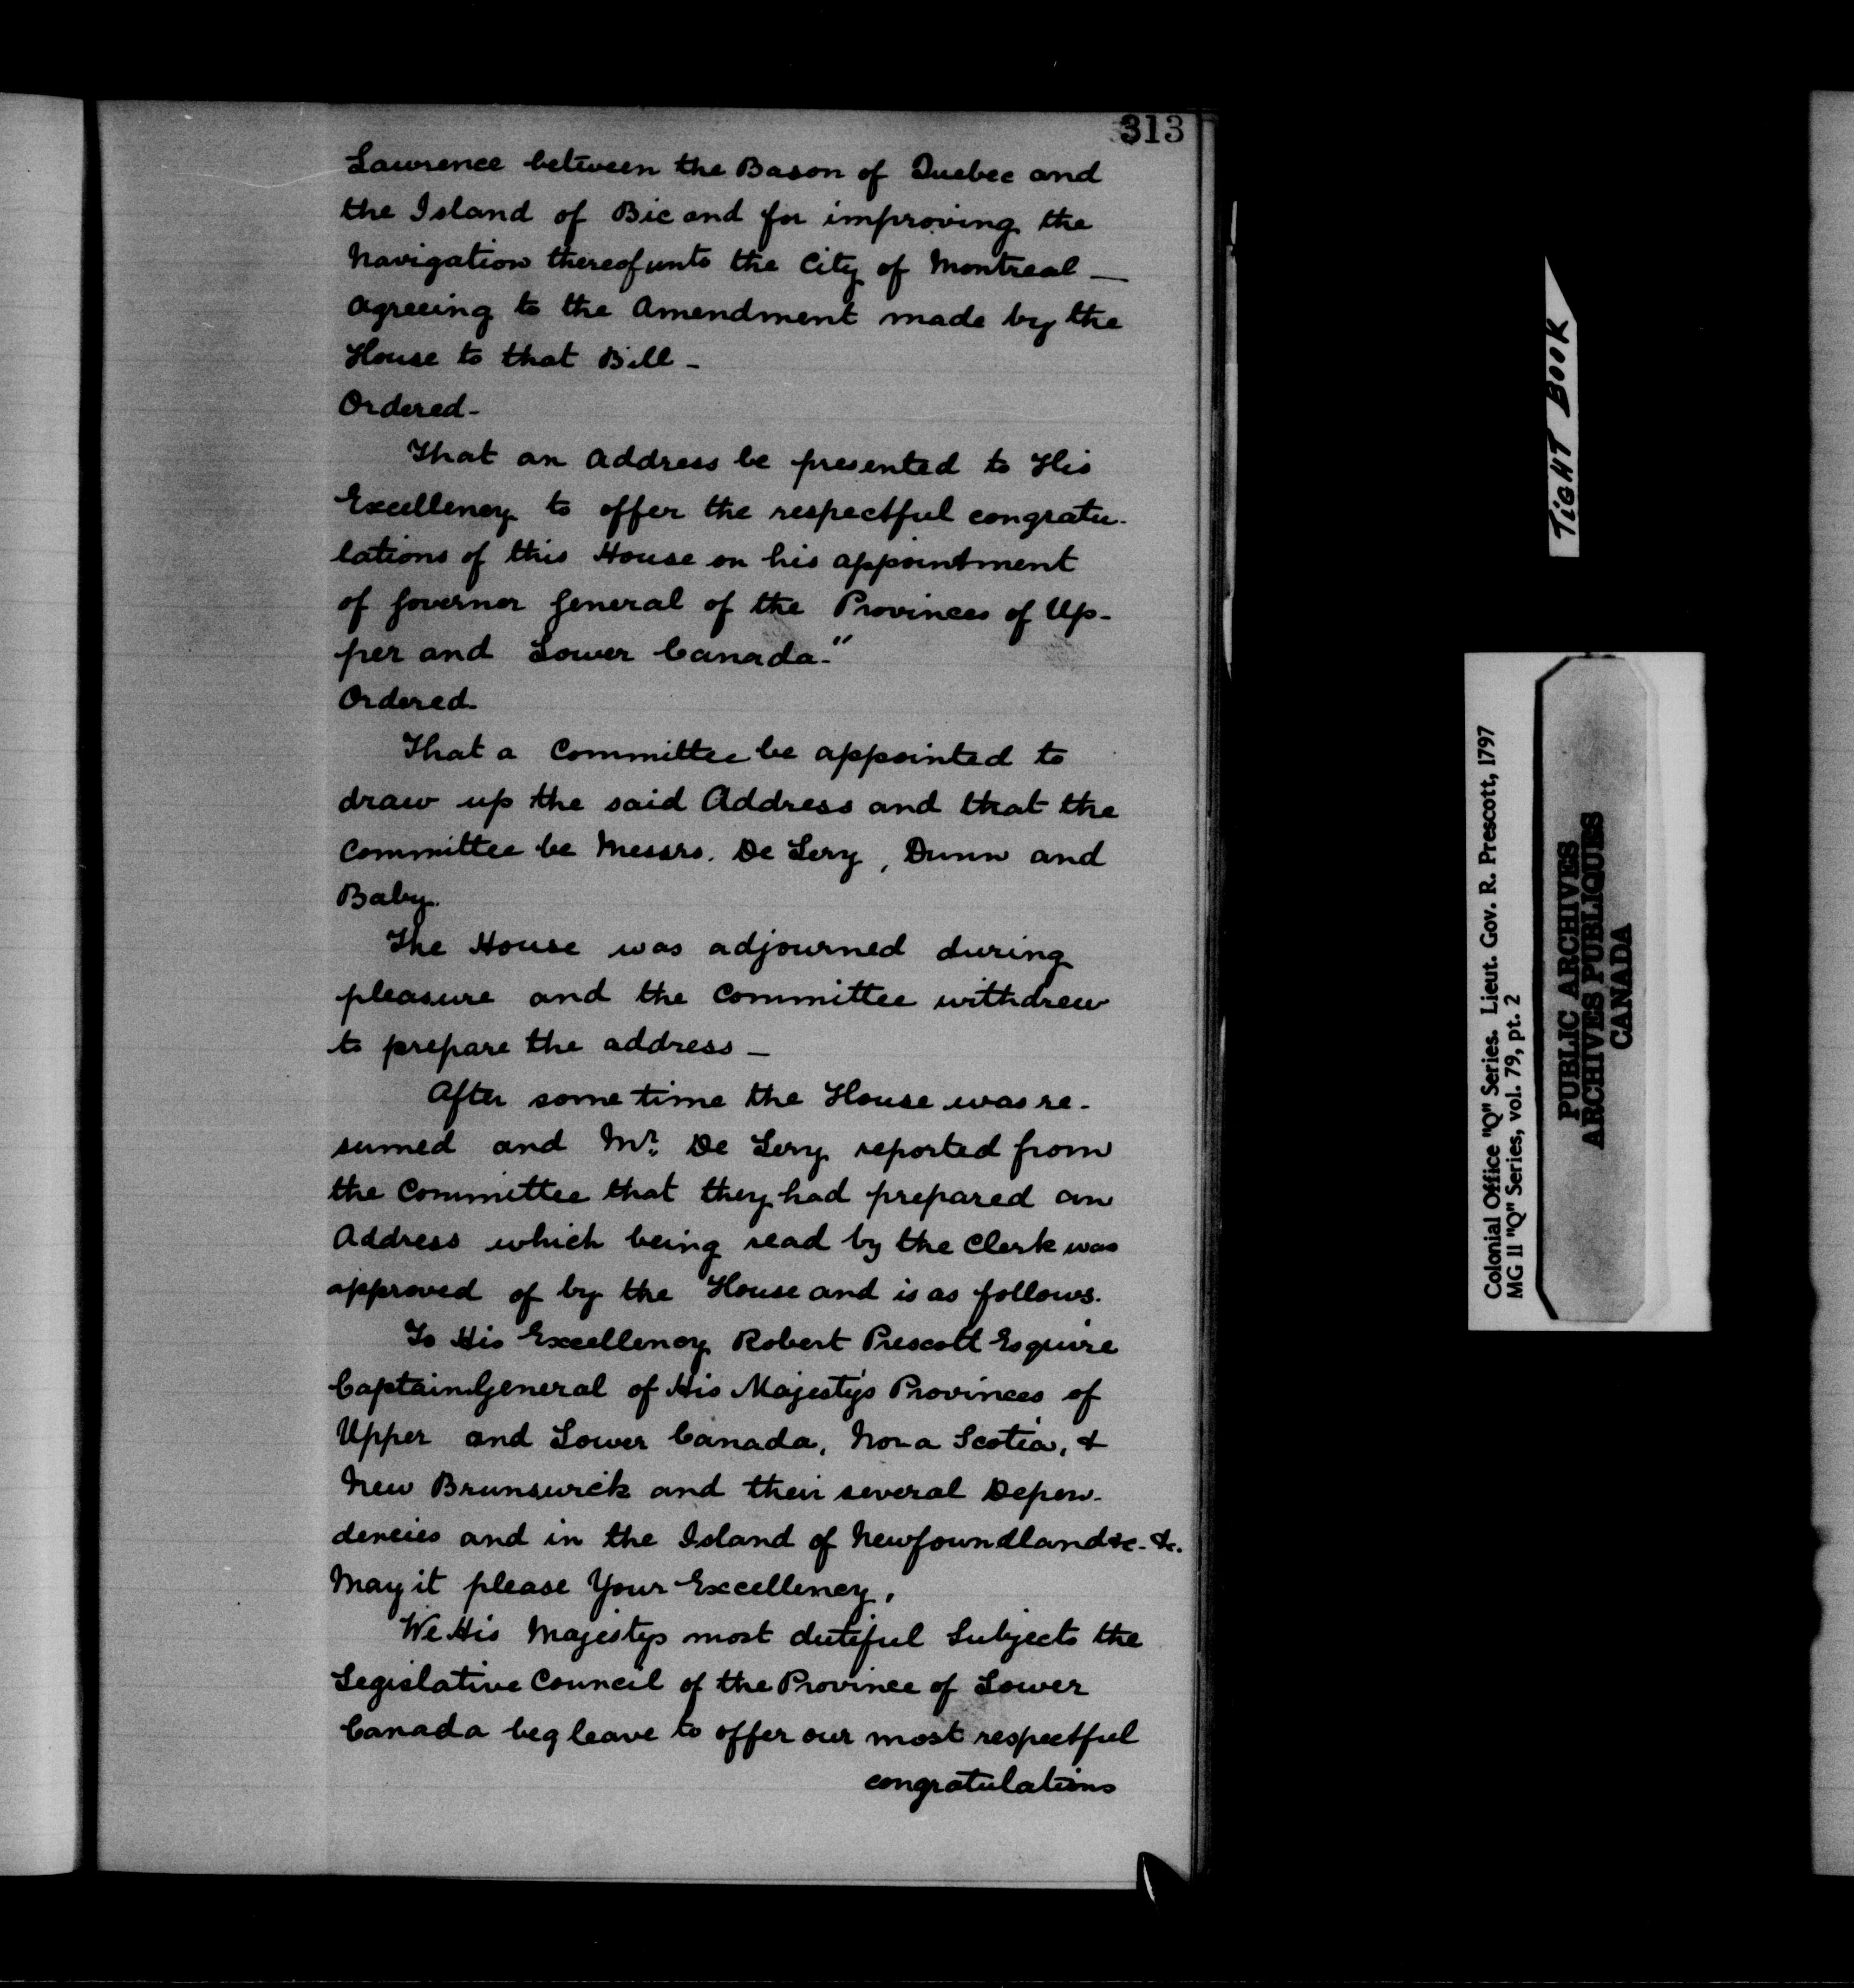 313
Lawrence between the Bason of Quebec and
the Island of Bic and for improving the
Navigation thereof unto the City of Montreal —
agreeing to the Amendment made by the
House to that Bill –
Ordered –
That an Address be presented to His
Excellency to offer the respectful congratu-
lations of this House on his appointment
of Governor General of the Provinces of Up-
per and Lower Canada."
Ordered.
That a Committee be appointed to
draw up the said Address and that the
Committee be Messrs. De Lery, Dunn and
Baby.
The House was adjourned during
pleasure and the Committee withdrew
to prepare the address –
After some time the House was re-
sumed and Mr. De Lery reported from
the Committee that they had prepared an
Address which being read by the Clerk was
approved of by the House and is as follows.
To His Excellency Robert Prescott Esquire
Captain General of His Majesty's Provinces of
Upper and Lower Canada, Nova Scotia, &
New Brunswick and their several Depen-
dencies and in the Island of Newfoundland &c. &c.
May it please Your Excellency,
We His Majestys most dutiful Subjects the
Legislative Council of the Province of Lower
Canada beg leave to offer our most respectful
congratulations
TIGHT BOOK
Colonial Office "Q" Series. Lieut. Gov. R. Prescott, 1797
MG 11 "Q" Series, vol. 79, pt. 2
PUBLIC ARCHIVES
ARCHIVES PUBLIQUES
CANADA